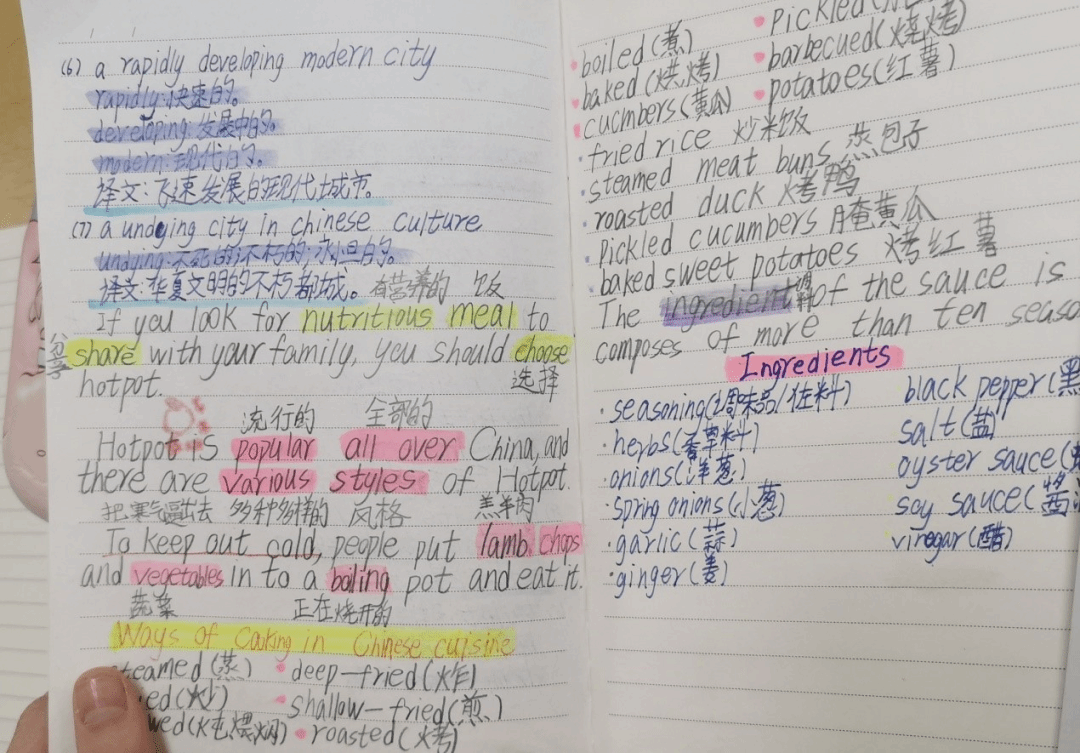 (6) a rapidly developing modern city
rapidly:快速的。
developing:发展中的。
modern:现代的。
译文:飞速发展的现代城市。
(7) a undying city in chinese culture
undying:不死的;不朽的;永恒的。
译文:华夏文明的不朽都城。
有营养的 饭
If you look for nutritious meal to
分享
share with your family, you should choose
hotpot.
选择
流行的 全部的
Hotpot is popular all over China, and
there are various styles of Hotpot.
把寒气逼出去 多种多样的 风格 羔羊肉
To keep out cold, people put lamb chops
and vegetables in to a boiling pot and eat it.
蔬菜 正在烧开的
Ways of cooking in Chinese cuisine
steamed(蒸)
deep-fried(炸)
(炒)
shallow-fried(煎)
(炖煨焖)
roasted(烤)
boiled(煮)
pickled
baked(烘烤)
barbecued(烧烤)
cucmbers(黄瓜)
potatoes(红薯)
fried rice 炒米饭
steamed meat buns 蒸包子
roasted duck 烤鸭
pickled cucumbers 腌黄瓜
baked sweet potatoes 烤红薯
The ingredient of the sauce is
composes of more than ten
Ingredients
seasoning(调味品/佐料)
black pepper(黑
herbs(香草料)
salt(盐)
onions(洋葱)
oyster sauce
spring onions(小葱)
soy sauce(酱
garlic(蒜)
vinegar(醋)
ginger(姜)